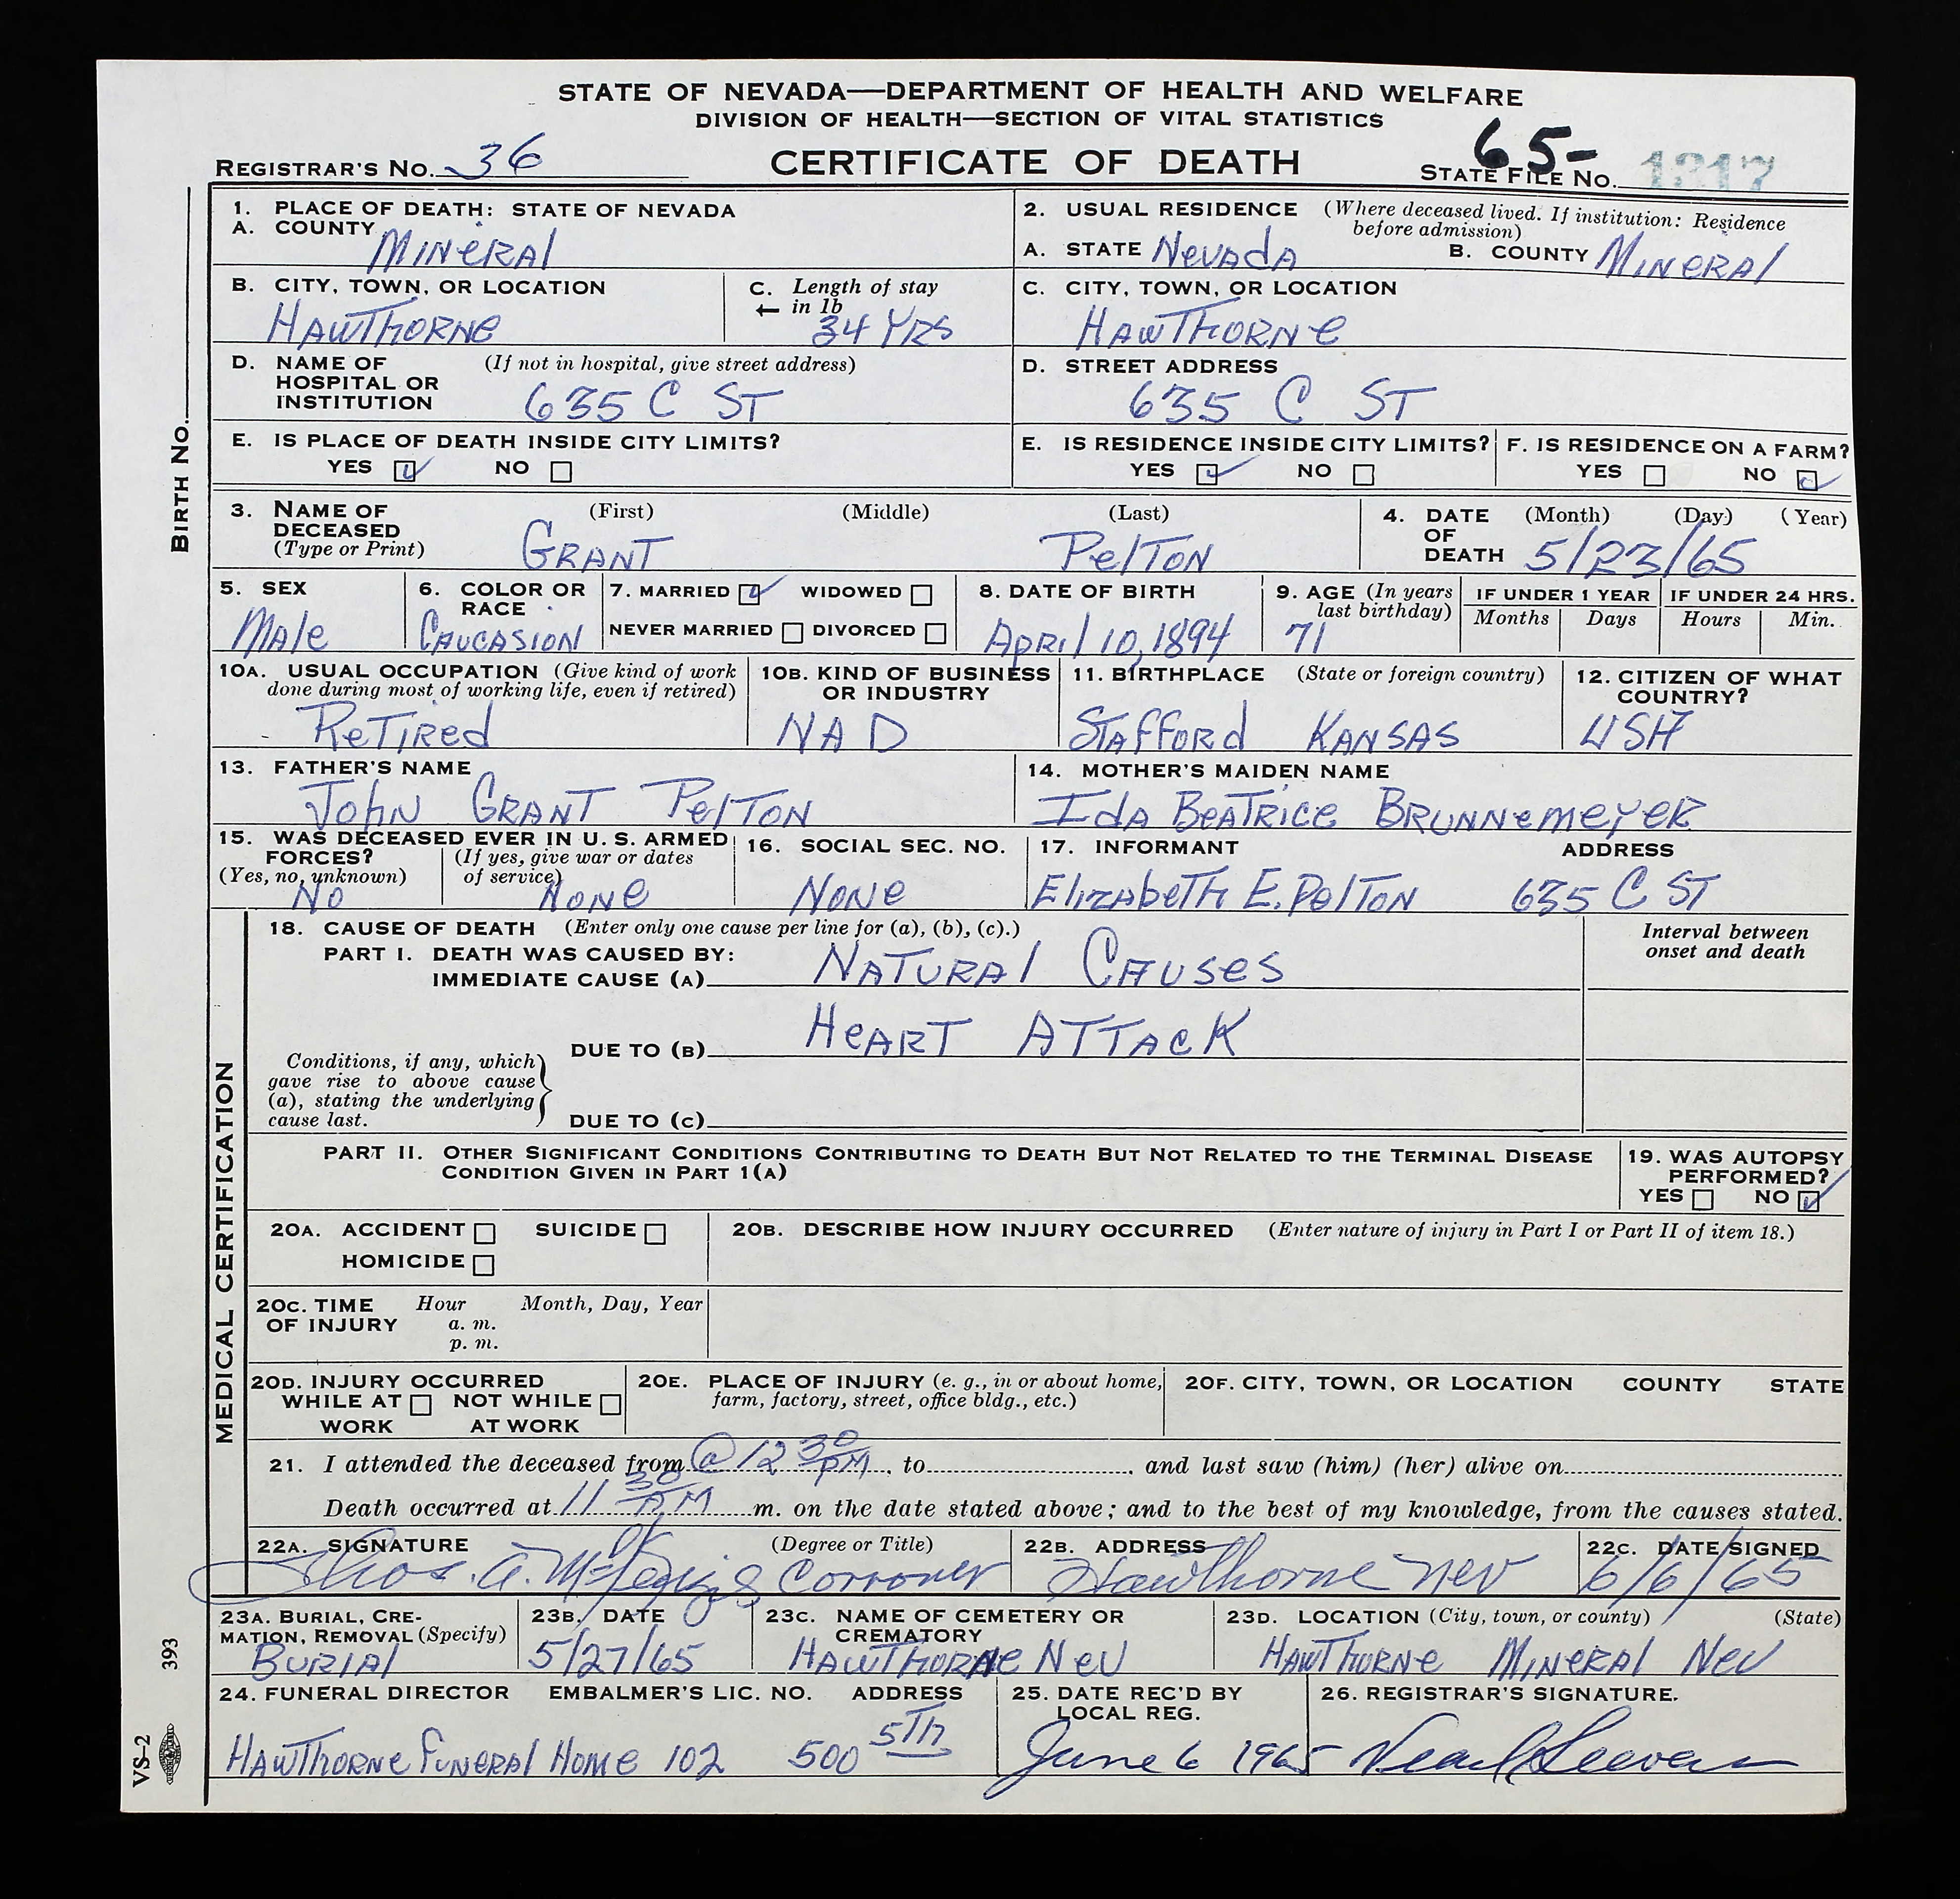 STATE OF NEVADA—DEPARTMENT OF HEALTH AND WELFARE
DIVISION OF HEALTH—SECTION OF VITAL STATISTICS
REGISTRAR'S No. 36
CERTIFICATE OF DEATH
65-
STATE FILE No. 1317
BIRTH No.
1. PLACE OF DEATH: STATE OF NEVADA
A. COUNTY Mineral
2. USUAL RESIDENCE (Where deceased lived. If institution: Residence before admission)
A. STATE Nevada B. COUNTY Mineral
B. CITY, TOWN, OR LOCATION
Hawthorne
C. Length of stay in 1b
34 Yrs
C. CITY, TOWN, OR LOCATION
Hawthorne
D. NAME OF HOSPITAL OR INSTITUTION (If not in hospital, give street address)
635 C St
D. STREET ADDRESS
635 C St
E. IS PLACE OF DEATH INSIDE CITY LIMITS?
YES NO
E. IS RESIDENCE INSIDE CITY LIMITS?
YES NO
F. IS RESIDENCE ON A FARM?
YES NO
3. NAME OF DECEASED (Type or Print) (First) (Middle) (Last)
Grant Pelton
4. DATE OF DEATH (Month) (Day) (Year)
5/23/65
5. SEX
Male
6. COLOR OR RACE
Caucasion
7. MARRIED WIDOWED
NEVER MARRIED DIVORCED
8. DATE OF BIRTH
April 10, 1894
9. AGE (In years last birthday)
71
IF UNDER 1 YEAR
Months Days
IF UNDER 24 HRS.
Hours Min.
10A. USUAL OCCUPATION (Give kind of work done during most of working life, even if retired)
Retired
10B. KIND OF BUSINESS OR INDUSTRY
NAD
11. BIRTHPLACE (State or foreign country)
Stafford Kansas
12. CITIZEN OF WHAT COUNTRY?
USA
13. FATHER'S NAME
John Grant Pelton
14. MOTHER'S MAIDEN NAME
Ida Beatrice Brunnemeyer
15. WAS DECEASED EVER IN U. S. ARMED FORCES?
(Yes, no, unknown) No
(If yes, give war or dates of service) None
16. SOCIAL SEC. NO.
None
17. INFORMANT ADDRESS
Elizabeth E. Pelton 635 C St
MEDICAL CERTIFICATION
18. CAUSE OF DEATH (Enter only one cause per line for (a), (b), (c).)
Interval between onset and death
PART I. DEATH WAS CAUSED BY:
IMMEDIATE CAUSE (A) Natural Causes
DUE TO (B) Heart Attack
Conditions, if any, which gave rise to above cause (a), stating the underlying cause last.
DUE TO (C)
PART II. OTHER SIGNIFICANT CONDITIONS CONTRIBUTING TO DEATH BUT NOT RELATED TO THE TERMINAL DISEASE CONDITION GIVEN IN PART 1(A)
19. WAS AUTOPSY PERFORMED?
YES NO
20A. ACCIDENT SUICIDE
HOMICIDE
20B. DESCRIBE HOW INJURY OCCURRED (Enter nature of injury in Part I or Part II of item 18.)
20C. TIME OF INJURY Hour a. m. p. m. Month, Day, Year
20D. INJURY OCCURRED
WHILE AT WORK NOT WHILE AT WORK
20E. PLACE OF INJURY (e. g., in or about home, farm, factory, street, office bldg., etc.)
20F. CITY, TOWN, OR LOCATION COUNTY STATE
21. I attended the deceased from @ 12 30 PM, to , and last saw (him) (her) alive on
Death occurred at 11 30 AM m. on the date stated above; and to the best of my knowledge, from the causes stated.
22A. SIGNATURE (Degree or Title)
Thos. A. Corroner
22B. ADDRESS
Hawthorne Nev
22C. DATE SIGNED
6/6/65
23A. BURIAL, CREMATION, REMOVAL (Specify)
Burial
23B. DATE
5/27/65
23C. NAME OF CEMETERY OR CREMATORY
Hawthorne Nev
23D. LOCATION (City, town, or county) (State)
Hawthorne Mineral Nev
24. FUNERAL DIRECTOR EMBALMER'S LIC. NO. ADDRESS
Hawthorne Funeral Home 102 500 5th
25. DATE REC'D BY LOCAL REG.
June 6 1965
26. REGISTRAR'S SIGNATURE.
393
VS-2